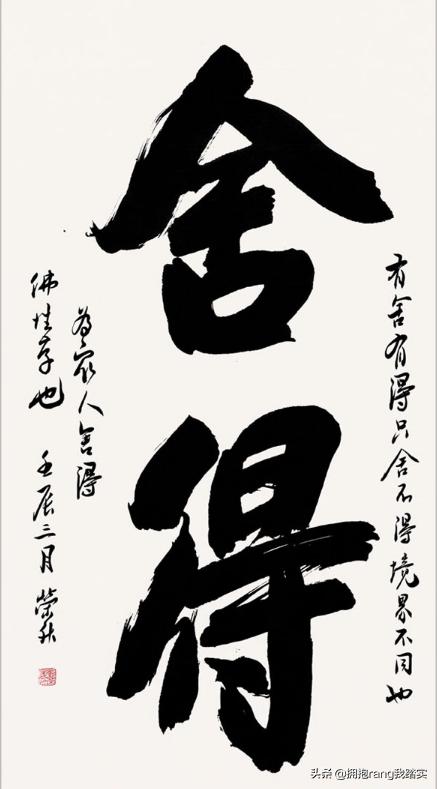 有舍有得只舍不得境界不同也
舍得
為眾人舍得
佛性存也 壬辰三月 榮秋
头条 @拥抱rang我踏实